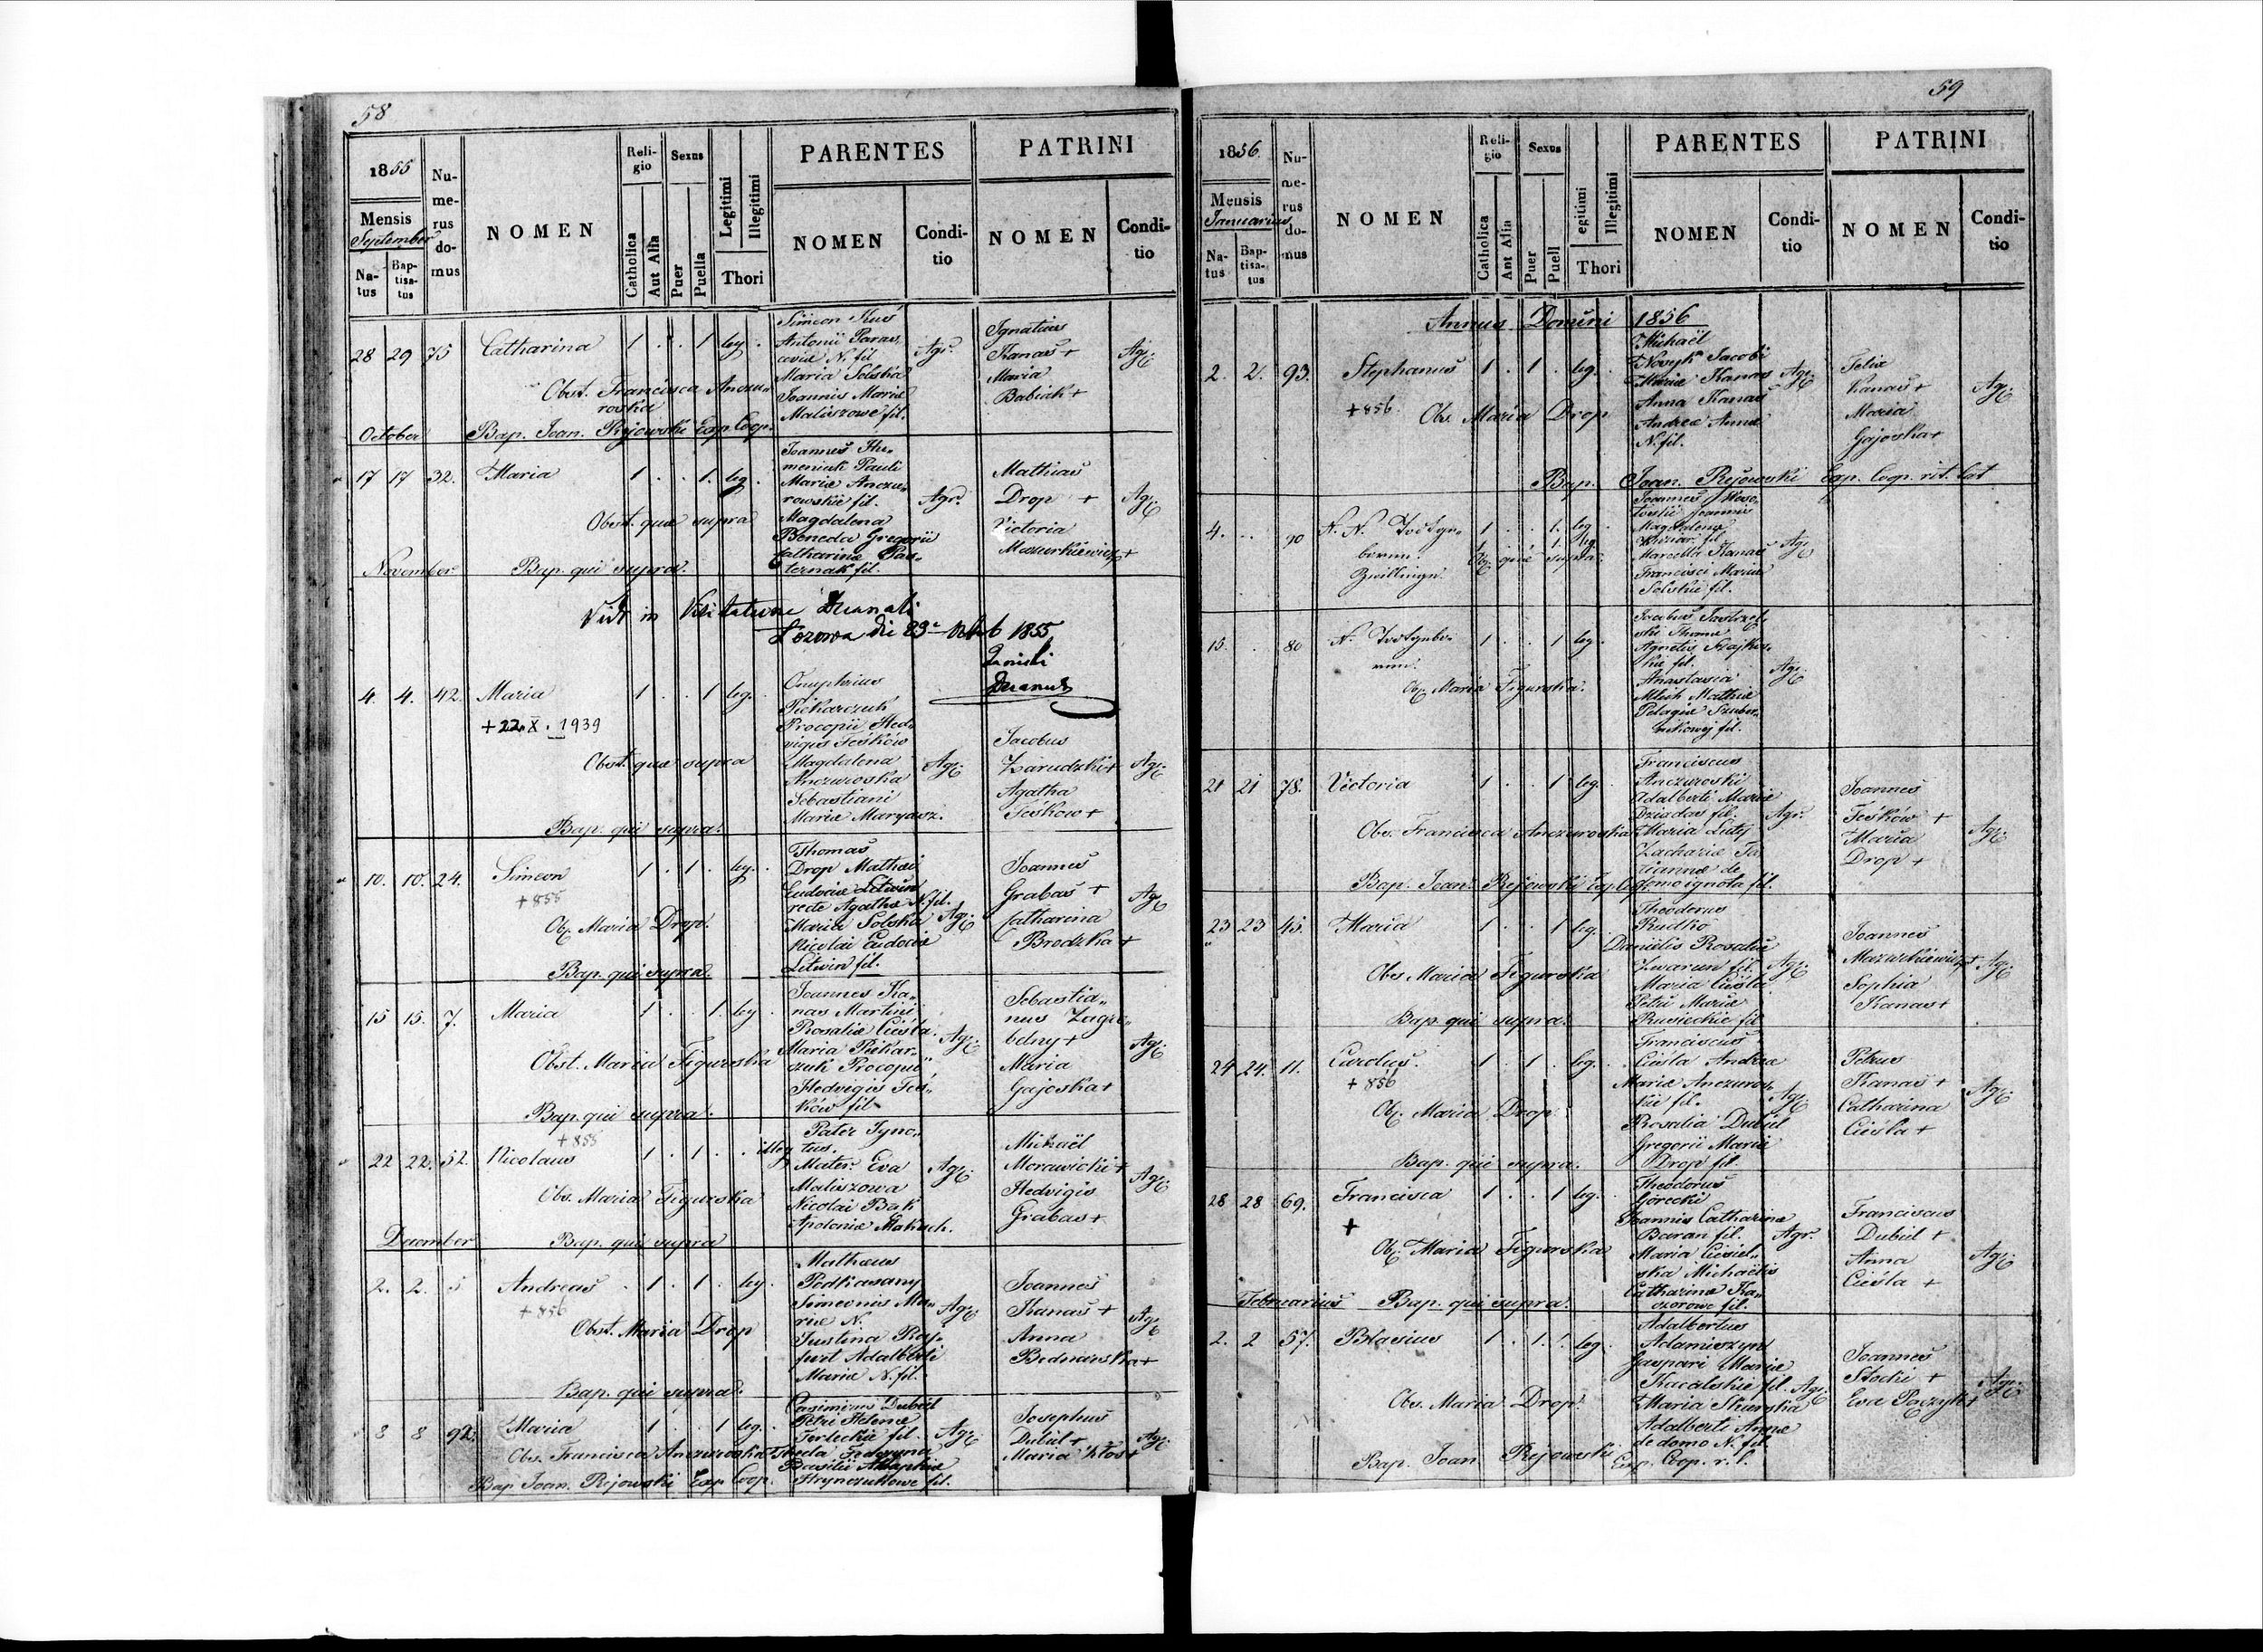 58
1855
Mensis
September
Natus
Baptisatus
Numerus domus
NOMEN
Religio
Catholica
Aut Alia
Sexus
Puer
Puella
Legitimi
Illegitimi
Thori
PARENTES
NOMEN
Conditio
PATRINI
NOMEN
Conditio
28 29 75 Catharina 1 . . 1 leg.
Obst. Francisca Anczu„
roska
Bap. Joan. Rejowski Exp. Coop.
Simeon Kuś
Antonii Paras„
cevia N. fil
Maria Solska
Joannis Maria
Maliszowe fil.
Agr.
Ignatius
Kanas +
Maria
Babiak +
Agr.
October
17 17 32. Maria 1 . . 1. leg.
Obst. quae supra
Bap. qui supra.
Joannes Hu„
meniuk Pauli
Mariæ Anczu„
rowskie fil.
Magdalena
Beneda Gregorii
Catharinæ Pas„
ternak fil.
Agr.
Mathias
Drop +
Victoria
Mazurkiewicz +
Agr.
November
Vidi in Visitatione Decanali
Łozowa die 23
1855
Decanus
4. 4. 42. Maria 1 . . 1 leg.
+ 22. X. 1939
Obst. quae supra
Bap. qui supra.
Onuphrius
Piekarczuk
Procopii Hed„
vigis Feśków
Magdalena
Anczuroska
Sebastiani
Mariæ Maryasz.
Agr.
Jacobus
Zarudzki +
Agatha
Feśkow +
Agr.
10. 10. 24. Simeon 1 . 1 . leg.
+ 855
Ob. Maria Drop.
Bap. qui supra.
Thomas
Drop Mathæi
Eudociæ Litwin
recte Agathæ N. fil.
Maria Solska
Nicolai Eudociæ
Litwin fil.
Agr.
Joannes
Grabas +
Catharina
Brodzka +
Agr.
15 15. 7. Maria 1 . . 1. leg.
Obst. Maria Figurska
Bap. qui supra.
Joannes Ka„
nas Martini
Rosaliæ Cieśla
Maria Piekar„
czuk Procopii
Hedvigis Feś„
ków fil.
Agr.
Sebastia„
nus Zagre„
belny +
Maria
Gajoska +
Agr.
22 22. 52. Nicolaus 1 . 1 . . illeg
+ 855
Obs. Maria Figurska
Bap. qui supra
Pater Igno„
tus.
Mater Eva
Maliszowa
Nicolai Bak
Apoloniæ Makuch.
Agr.
Michaël
Morawicki +
Hedvigis
Grabas +
Agr.
December
2. 2. 5 Andreas 1 . 1 . leg.
+ 856
Obst. Maria Drop
Bap. qui supra.
Mathæus
Podkasany
Simeonis Ma„
riæ N.
Justina Raj„
furt Adalberti
Mariæ N. fil.
Agr.
Joannes
Kanas +
Anna
Bednarska +
Agr.
8 8 92. Maria 1 . . 1 leg.
Obs. Francisca Anczuroska
Bap. Joan. Rejowski Exp. Coop.
Casimirus Dubiel
Petri Helenæ
Torleckie fil.
Thecla Fedoryna
Basilii
Hrynczukowe fil.
Agr.
Josephus
Dubiel +
Maria Kłos +
Agr.
59
1856.
Mensis
Januarius
Natus
Baptisatus
Numerus domus
NOMEN
Religio
Catholica
Aut Alia
Sexus
Puer
Puell
egitimi
Illegitimi
Thori
PARENTES
NOMEN
Conditio
PATRINI
NOMEN
Conditio
Annus Domini 1856
2. 2. 93. Stephanus 1 . 1 . leg.
+ 856.
Ob. Maria Drop
Bap. Joan. Rejowski Exp. Coop. rit. lat
Michaël
Nosyk Jacobi
Mariæ Kanas
Anna Kanas
Andreæ Annæ
N. fil.
Agr.
Felix
Kanas +
Maria
Gajoska +
Agr.
4. .. 90 N. N. Todtge„
boren.
Zwillinge.
1 . . 1. leg
quæ supra.
Joannes
Joannis
Magdalenæ
fil.
Marcella Kanas
Francisci Mariæ
Solskie fil.
Agr.
15. . 80 N. Todtgebo„
ren.
1 . . 1 leg.
Ob. Maria Figurska.
Jacobus Jastrzęb„
ski Thomæ
Agnetis
fil.
Anastasia
Mlich Mathiæ
Pelagiæ Szuber„
nikowej fil.
Agr.
21 21 78. Victoria 1 . . 1 leg.
Obs. Francisca Anczuroska
Bap. Joan. Rejowski Exp. Coop.
Franciscus
Anczuroski
Adalberti Mariæ
Dziadas fil.
Maria Luty
Zachariæ Ta„
tiannæ de
domo ignota fil.
Agr.
Joannes
Feśków +
Maria
Drop +
Agr.
23 23 45. Maria 1 . . 1 leg
Obs. Maria Figurska
Bap. qui supra.
Theodorus
Rudko
Danielis Rosaliæ
Zwarun fil.
Maria Cieśla
Petri Mariæ
Rusieckie fil
Agr.
Joannes
Mazurkiewicz +
Sophia
Kanas +
Agr.
24 24. 11. Carolus. 1 . 1 . leg.
+ 856
Ob. Maria Drop
Bap. qui supra.
Franciscus
Cieśla Andreæ
Mariæ Anczuros„
kie fil.
Rosalia Dubiel
Gregorii Mariæ
Drop fil.
Agr.
Petrus
Kanas +
Catharina
Cieśla +
Agr.
28 28 69. Francisca 1 . . 1 leg.
+
Ob. Maria Figurska
Bap. qui supra.
Theodorus
Górecki
Joannis Catharinæ
Baran fil.
Maria Ciesiel„
ska Michaëlis
Catharinæ Ka„
czorowe fil.
Agr.
Franciscus
Dubiel +
Anna
Cieśla +
Agr.
Februarius
2. 2 57. Blasius 1 . 1. . leg
Obs. Maria Drop.
Bap. Joan Rejowski Exp. Coop. r. l.
Adalbertus
Adamiszyn
Gaspari Mariæ
Kacalskie fil.
Maria Skurska
Adalberti Annæ
de domo N. fil.
Agr.
Joannes
Słocki +
Eva Paczyk +
Agr.